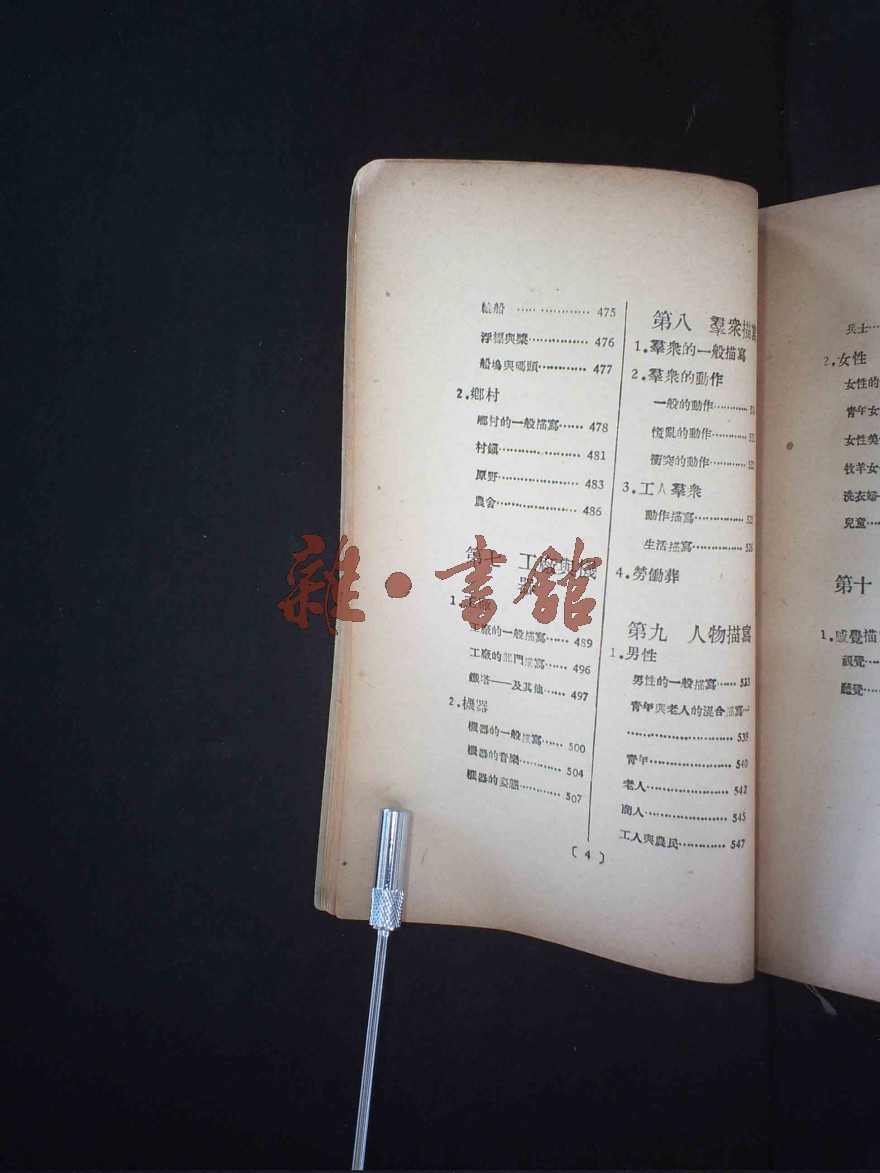 輪船 ………………… 475
浮標與槳…………… 476
船塢與碼頭………… 477
2.鄉村
鄉村的一般描寫…… 478
村鎮………………… 481
原野………………… 483
農舍………………… 486
第七 工廠與機
器
1.工廠
工廠的一般描寫…… 489
工廠的部門描寫…… 496
鐵塔——及其他…… 497
2.機器
機器的一般描寫…… 500
機器的音樂………… 504
機器的姿態………… 507
第八 羣衆描寫
1.羣衆的一般描寫
2.羣衆的動作
一般的動作…………
慌亂的動作…………
衝突的動作…………
3.工人羣衆
動作描寫……………
生活描寫……………
4.勞働葬
第九 人物描寫
1.男性
男性的一般描寫…… 533
青年與老人的混合描寫…
………………………… 538
青年………………… 540
老人………………… 542
商人………………… 545
工人與農民………… 547
〔4〕
兵士…
2.女性
女性的
青年女
女性美
牧羊女
洗衣婦
兒童…
第十
1.感覺描
視覺…
聽覺…
雜·書館